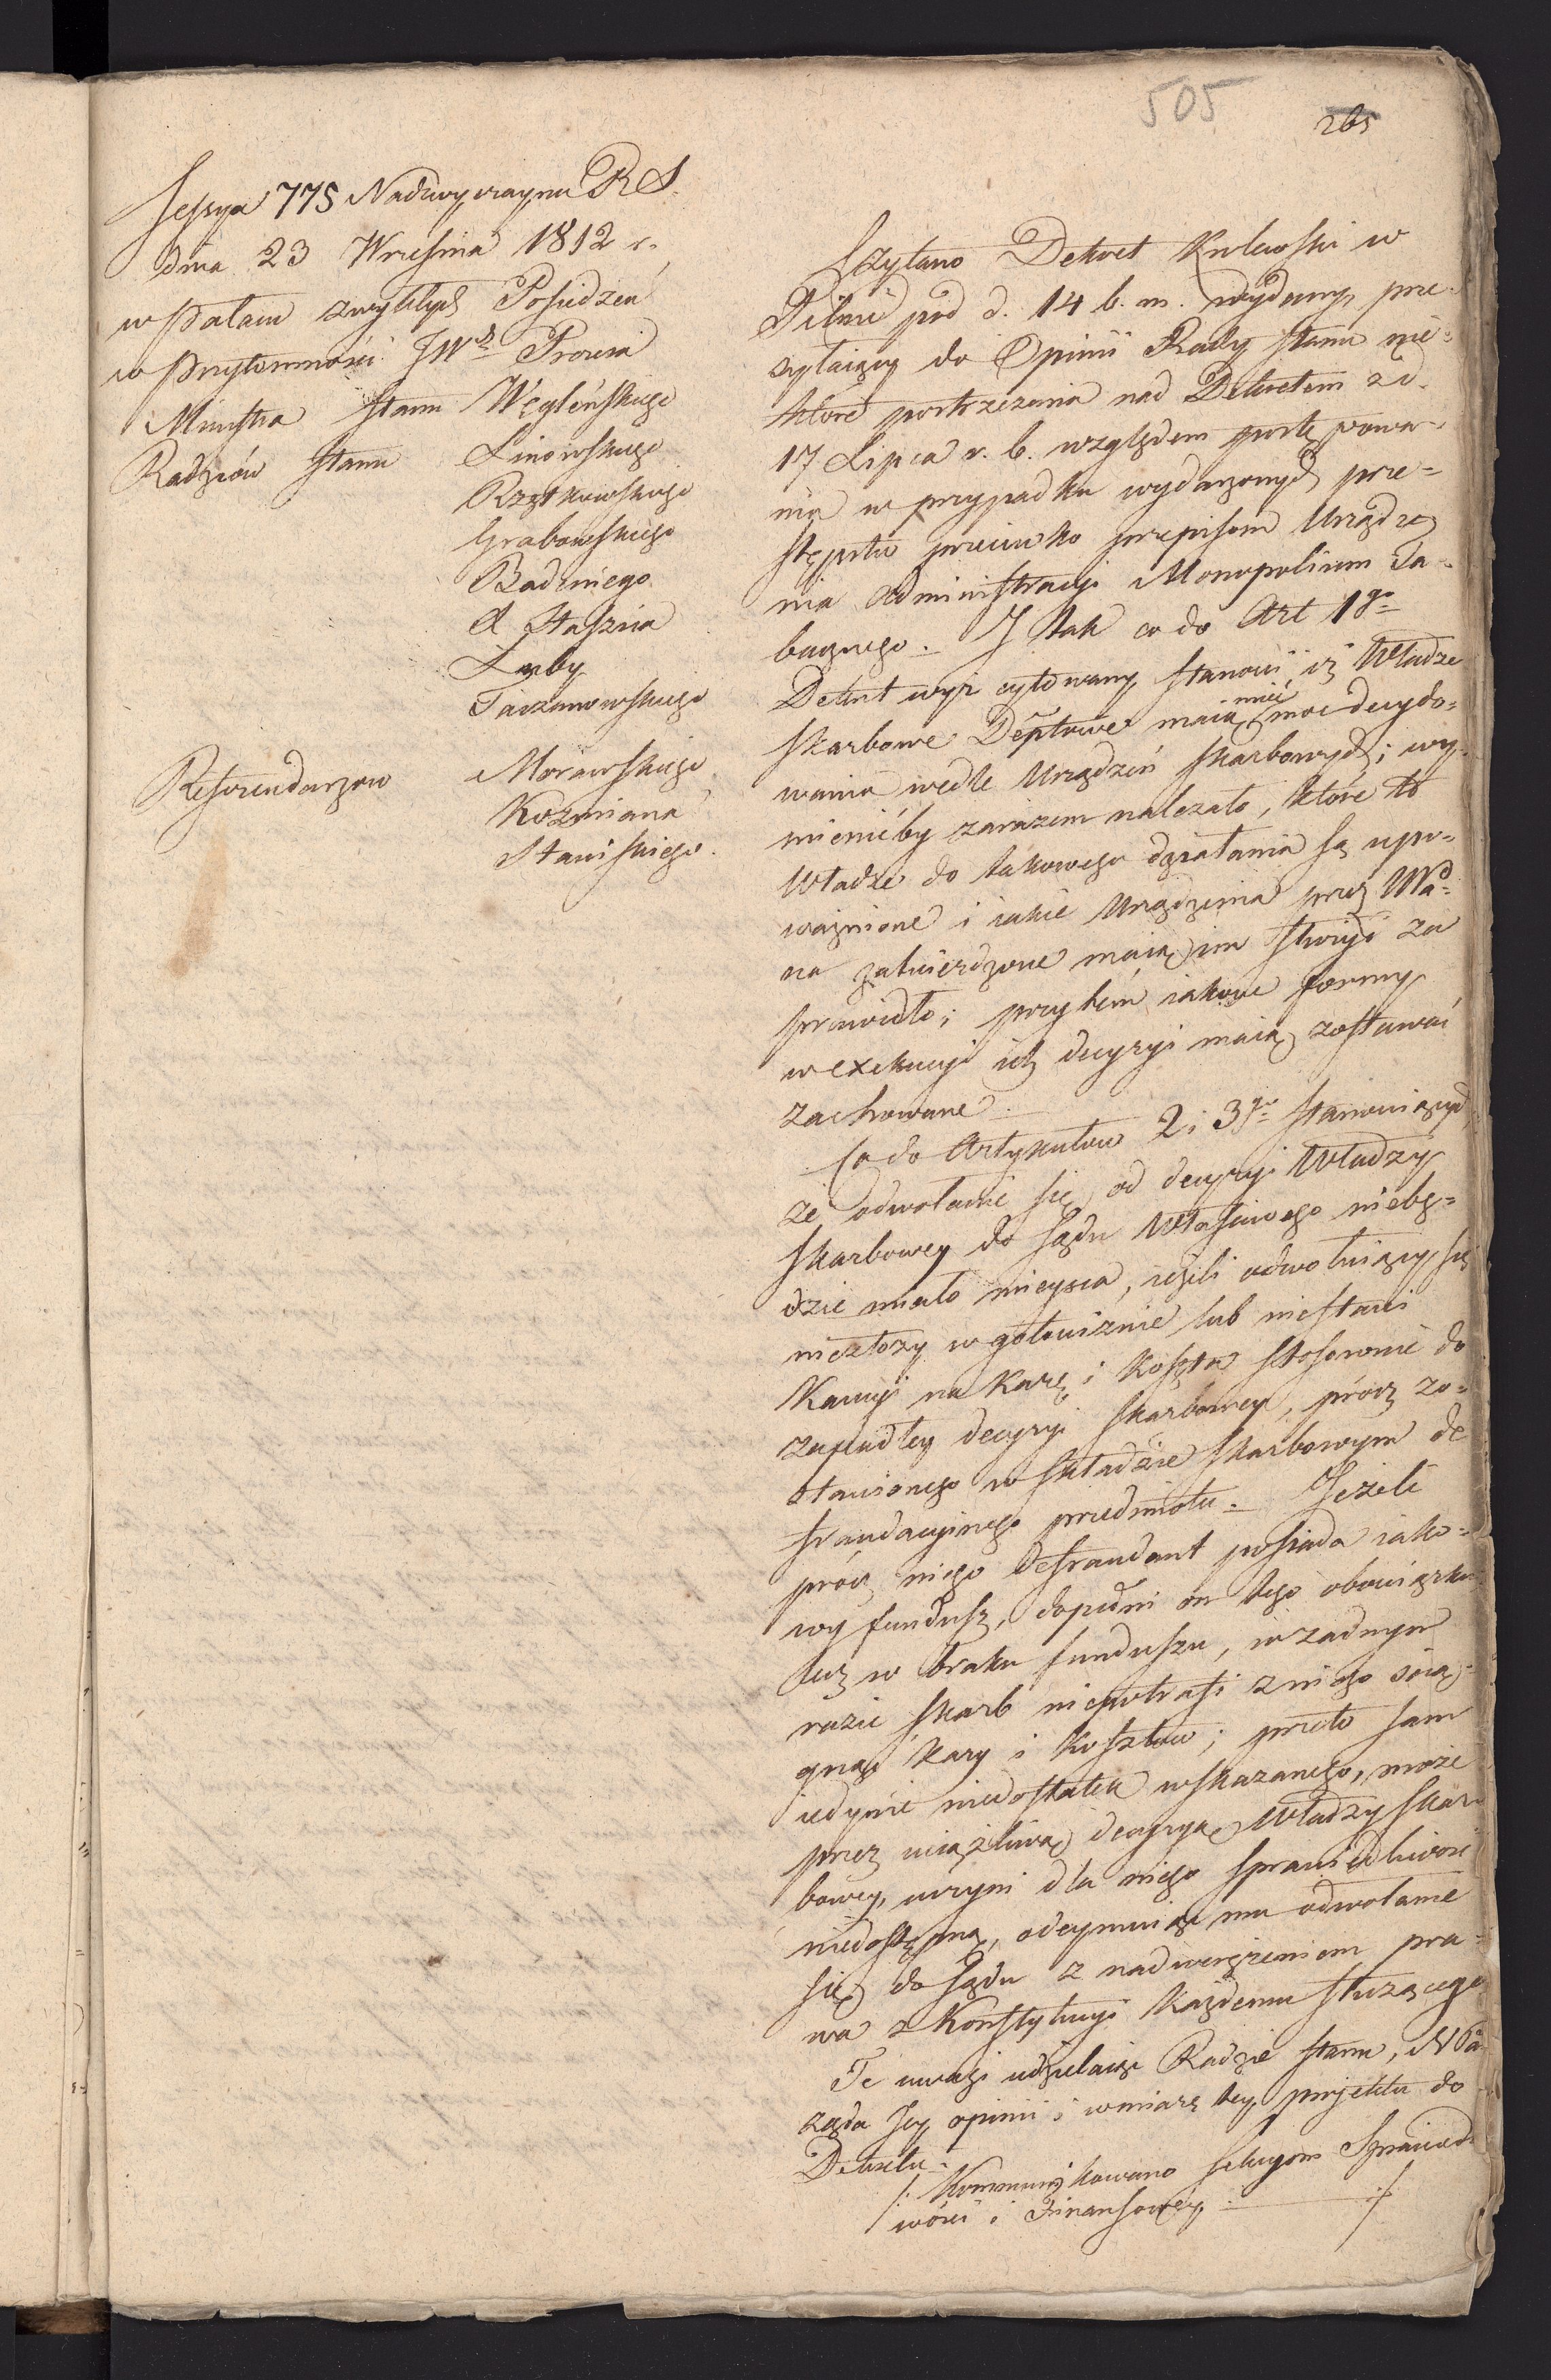 505
265
Sessya 775 Nadzwyczayna R S.
dnia 23 Wrzesnia 1812 r.
w Pałacu zwykłych Posiedzeń
w Przytomności JWch Prezesa
Ministra Stanu Węgleńskiego
Radzców Stanu Linowskiego
Rzątkowskiego
Grabowskiego
Badeniego
X Staszica
Łuby
Taczanowskiego
Referendarzow Morawskiego
Kozmiana
Stawiskiego.
Czytano Dekret Krolewski w
Pilnie pod d. 14 b. m. wydany, prze-
syłaiący do Opinii Rady Stanu nie-
które postrzeżenia nad Dekretem z d.
17 Lipca r. b. względem postępowa-
nia w przypadku wydarzonych prze-
stępstw przeciwko przepisom Urządze
nia Administracyi Monopolium Ta-
bacznego. I tak co do Art 1go
Dekret wyż cytowany stanowi, iż Władze
skarbowe Deptowe maią mieć moc decydo-
wania wedle Urządzeń skarbowych; wy-
mienićby zarazem należało, które to
Władze do takowego działania są upo-
ważnione i iakie Urządzenia przez NPa-
na zatwierdzone maią im służyć za
prawidło; przytem iakowe formy
w exekucyi ich decyzyi maią zostawać
zachowane.
Co do Artykułów 2 i 3go stanowiących
że odwołanie się od decyzyi Władzy
skarbowey do Sądu Właściwego niebę-
dzie miało mieysca, ieżeli odwołuiący się
niezłoży w gotowiznie lub niestawi
Kaucyi na Karę i koszta stosownie do
zapadłey decyzyi skarbowey, prócz zo-
stawionego w składzie skarbowym de
fraudacyinego przedmiotu. Jeżeli
prócz niego Defraudant posiada iako-
wy fundusz, dopełni on tego obowiązku
lecz w braku funduszu, w żadnym
razie skarb niepotrafi z niego ścią-
gnąć kary i kosztów; przeto sam
iedynie niedostatek wskazanego, może
przez uciążliwą decyzyą Władzy skar-
bowey, uczyni dla niego sprawiedliwość
niedostępną, odeymuiąc mu odwołanie
się do Sądu z nadwerężeniem pra-
wa z Konstytucyi każdemu służącego
Te uwagi udzielaiąc Radzie Stanu, NPan
żąda Jey opinii i w miarę tey projektu do
Dekretu.
/: Kommunikowano Sekcyom Sprawied
iwości i Finansowey. :/